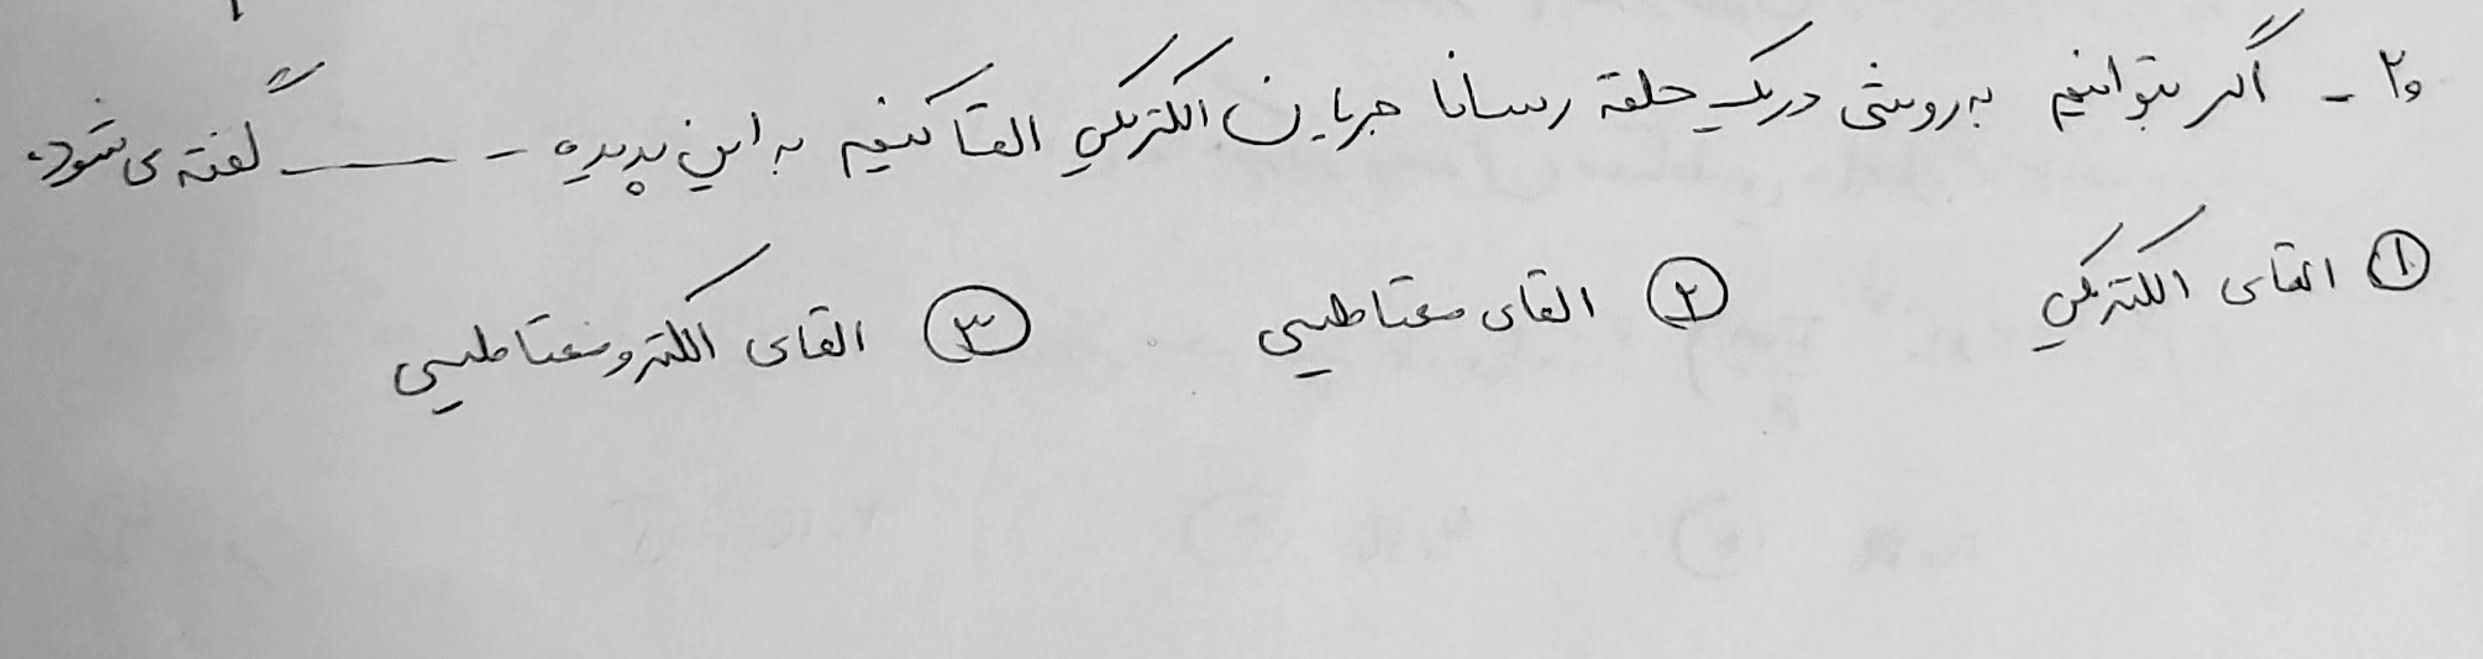 ۲۰ - اگر بتوانیم به روشی در یک حلقه رسانا جریان الکتریکی القا کنیم به این پدیده ــ ــــــ گفته می شود.
① القای الکتریکی ② القای مغناطیسی ③ القای الکترومغناطیسی